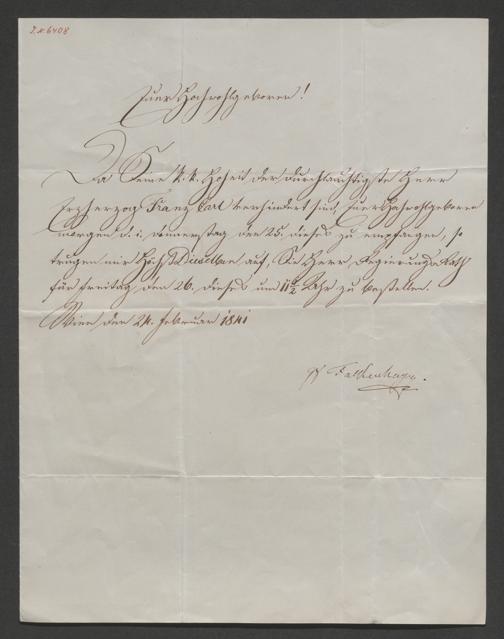 I.N. 6408
Euer Hochwohlgeboren!
Da Seine k. k. Hoheit der durchlauchtigste Herr
Erzherzog Franz Carl verhindert sind, Euer Hochwohlgeboren
morgen d. i. Donnerstag den 25. dieses zu empfangen, so
trugen mir Höchstdieselben auf, Sie Herr Regierungs Rath
für Freitag den 26. dieses um 11 1/2 Uhr zu bestellen.
Wien den 24. Februar 1841